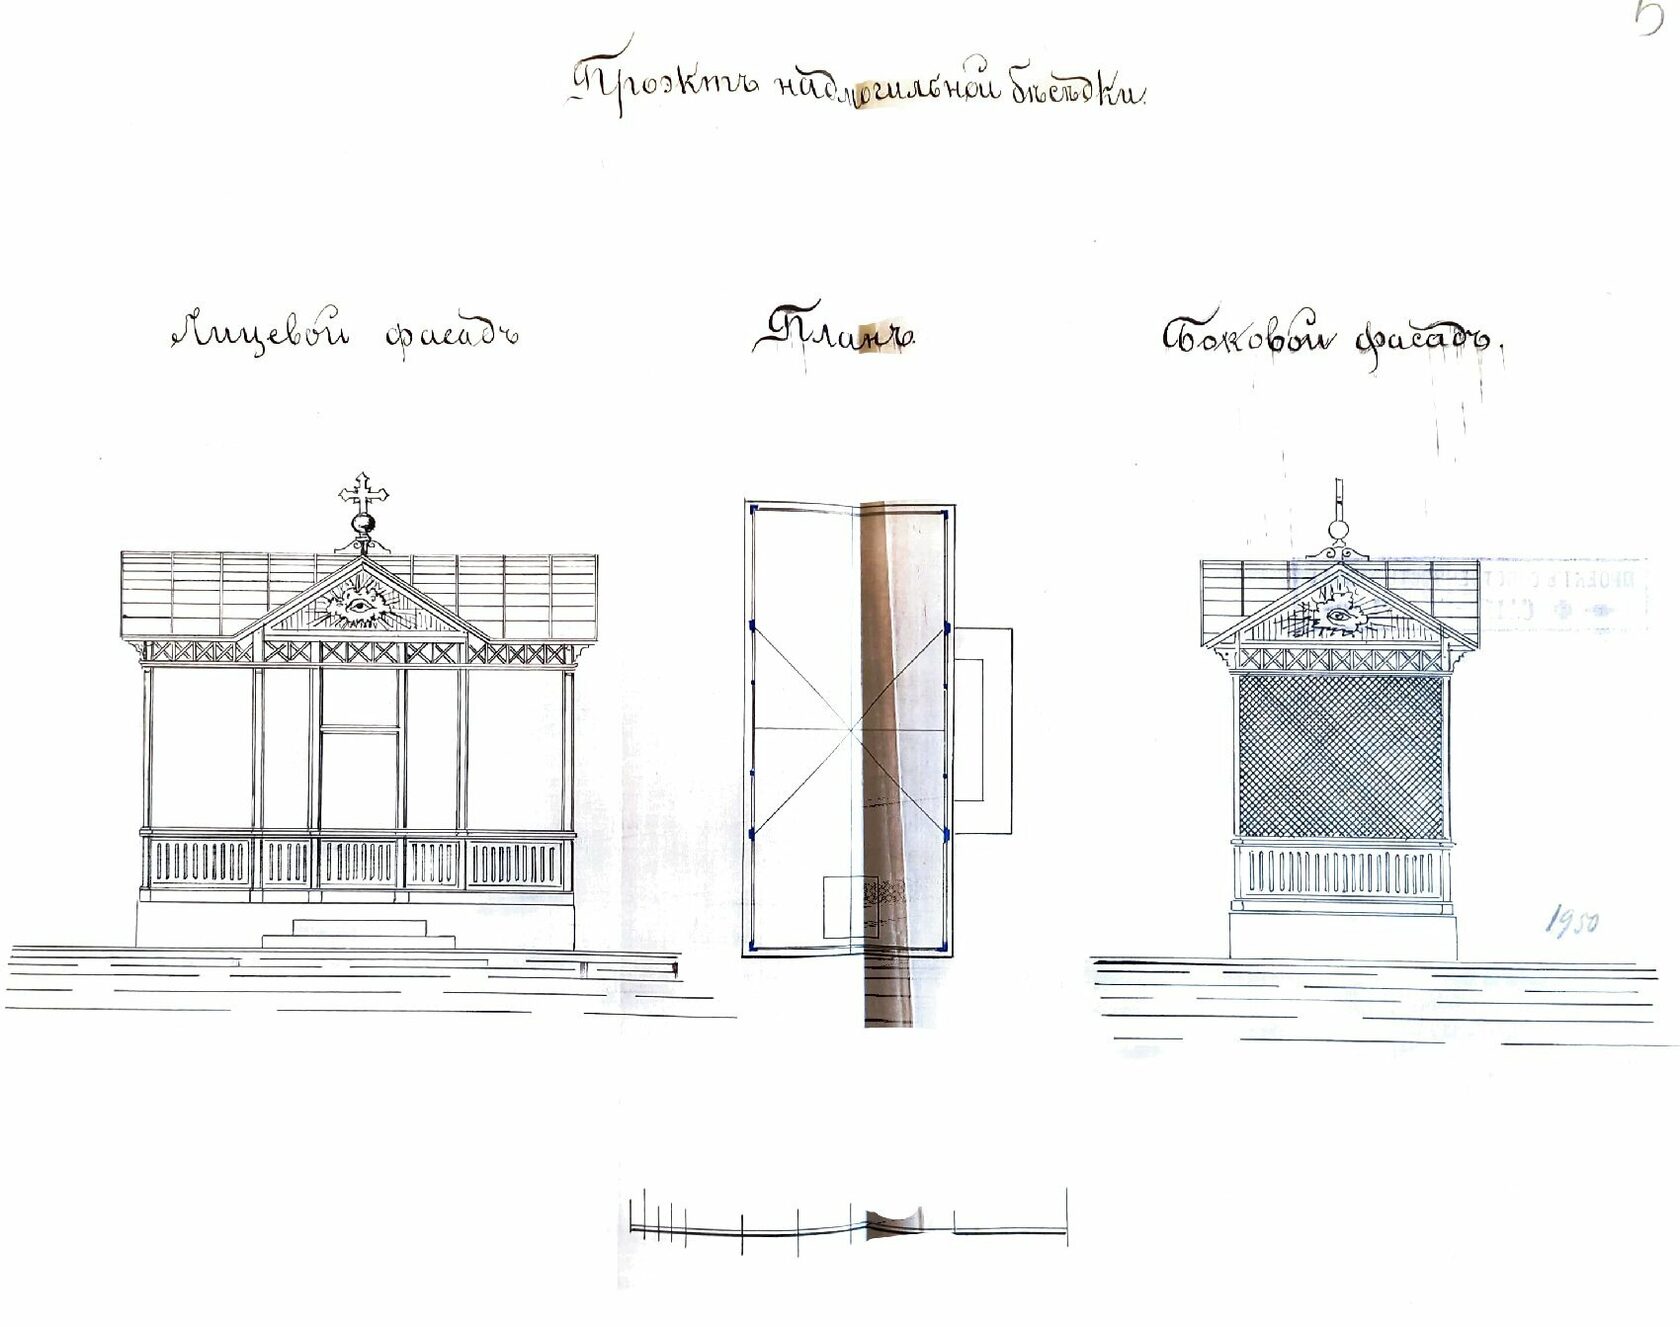 5
Проэктъ надмогильной бѣсѣдки.
Лицевой фасадъ
Планъ.
Боковой фасадъ.
1950